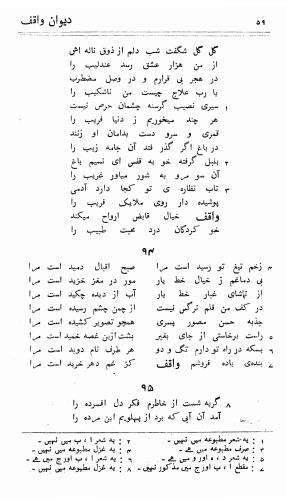 دیوان واقف
۵۹
گل گل شگفت شب دلم از ذوق ناله اش
از من هزار عشق رسد عندلیب را
در هجر بی قرارم و در وصل مضطرب
یا رب علاج چیست من ناشکیب را
سیری نصیب گرسنه چشمان حرص نیست ۱
هر چند میخوریم ز دنیا فریب را
قمری و سرو دست بدامان او زنند
در باغ اگر گذر فتد آن جامه زیب را
بلبل گرفته خو به قفس ای نسیم باغ ۲
آن سو مرو به شور میاور غریب را
تاب نظاره ی تو کجا دارد آدمی ۳
پوشیده دار روی ملایک فریب را
واقف خیال قابض ارواح میکند
خو کردگان درد محبت طبیب را
۹۴
زخم تیغ تو رسید است مرا صبح اقبال دمید است مرا
بی دماغم ز خیال خط یار مور در مغز خزید است مرا
از تماشای غبار خط یار آب از دیده چکید است مرا
در کف من قلم نرگس نیست از چمن چشم رسیده است مرا
جذبه حسن مصور پسری همچو تصویر کشیده است مرا
راست برخاستی از جای بغیر پشت ازین غصه خمید است مرا
بسکه در راه تو دارم تگ و دو هر طرف نام دوید است مرا
بنده‌ی باده فروشم واقف کز غم دهر خرید است مرا
۹۵
گریه شست از خاطرم فکر دل افسرده را ۸
آمد آن آبی که برد از پهلویم این مرده را
۱ : یه شعر مطبوعه میں نہیں -
۲ : یه شعر ا ، ب میں نہیں -
۳ : صرف مطبوعه میں ہے -
۴ : یه غزل مطبوعه میں نہیں -
۶ : یه شعر ا ، ب اور ج میں نہیں -
۷ : مقطع ا ، ب اور ج میں مذکور نہیں -
۸ : یه غزل مطبوعه میں نہیں -